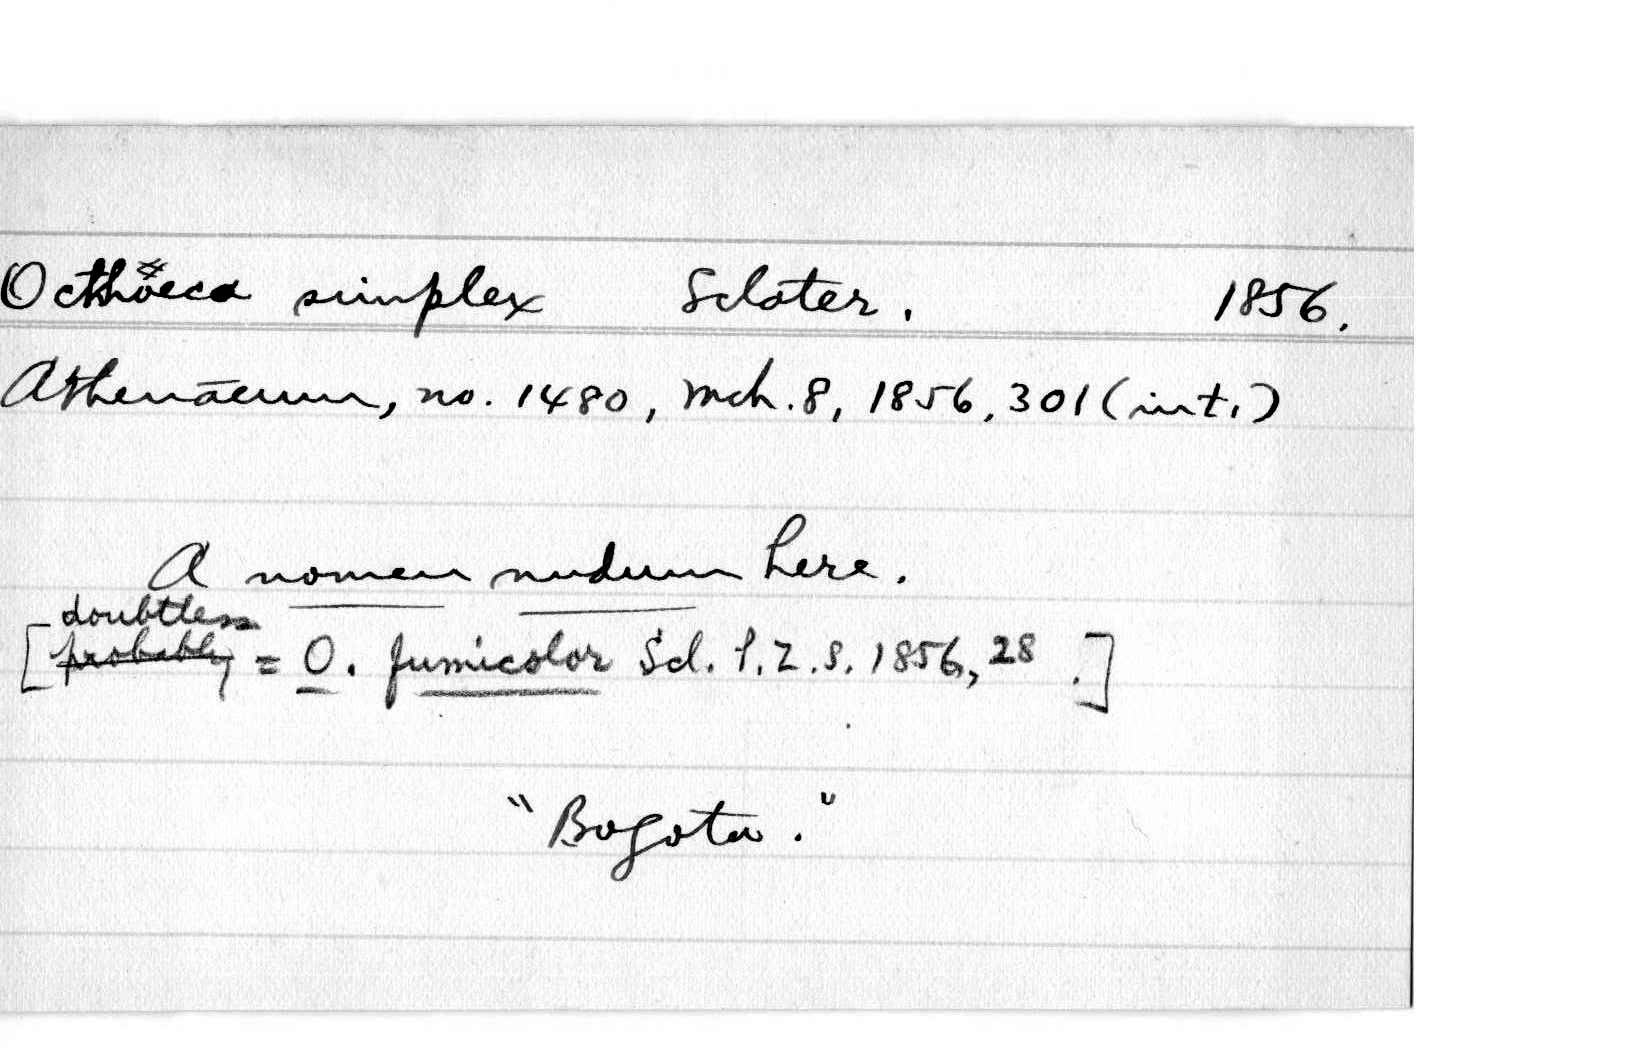 Octhöeca simplex Sclater. 1856.
Athenaeum, no. 1480, Mch. 8, 1856, 301 (int.)
A nomen nudum here.
doubtless
[probably = O. fumicolor Scl. P.Z.S. 1856, 28 .]
"Bogota."